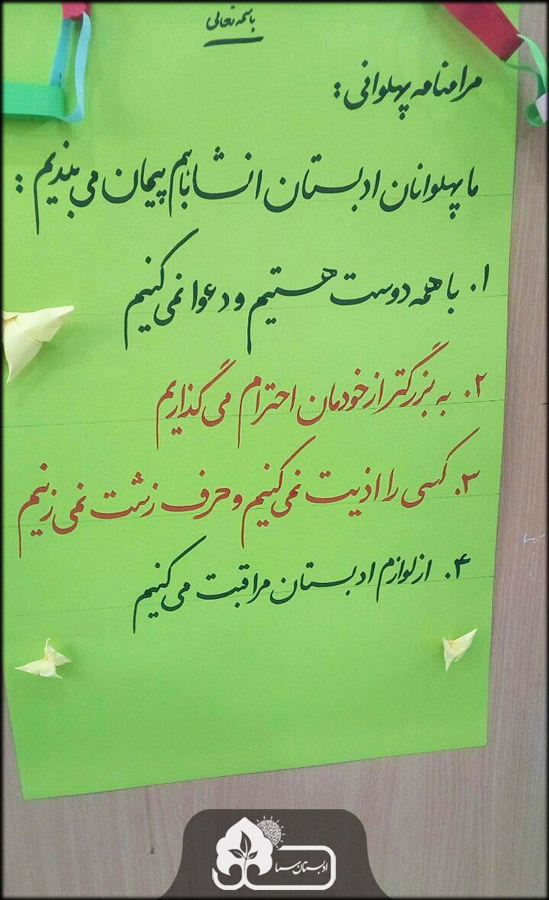 باسمه تعالی
مرامنامه پهلوانی:
ما پهلوانان ادبستان انشا باهم پیمان می بندیم:
۱. با همه دوست هستیم و دعوا نمی کنیم
۲. به بزرگتر از خودمان احترام می گذاریم
۳. کسی را اذیت نمی کنیم و حرف زشت نمی زنیم
۴. از لوازم ادبستان مراقبت می کنیم
ادبستان سما